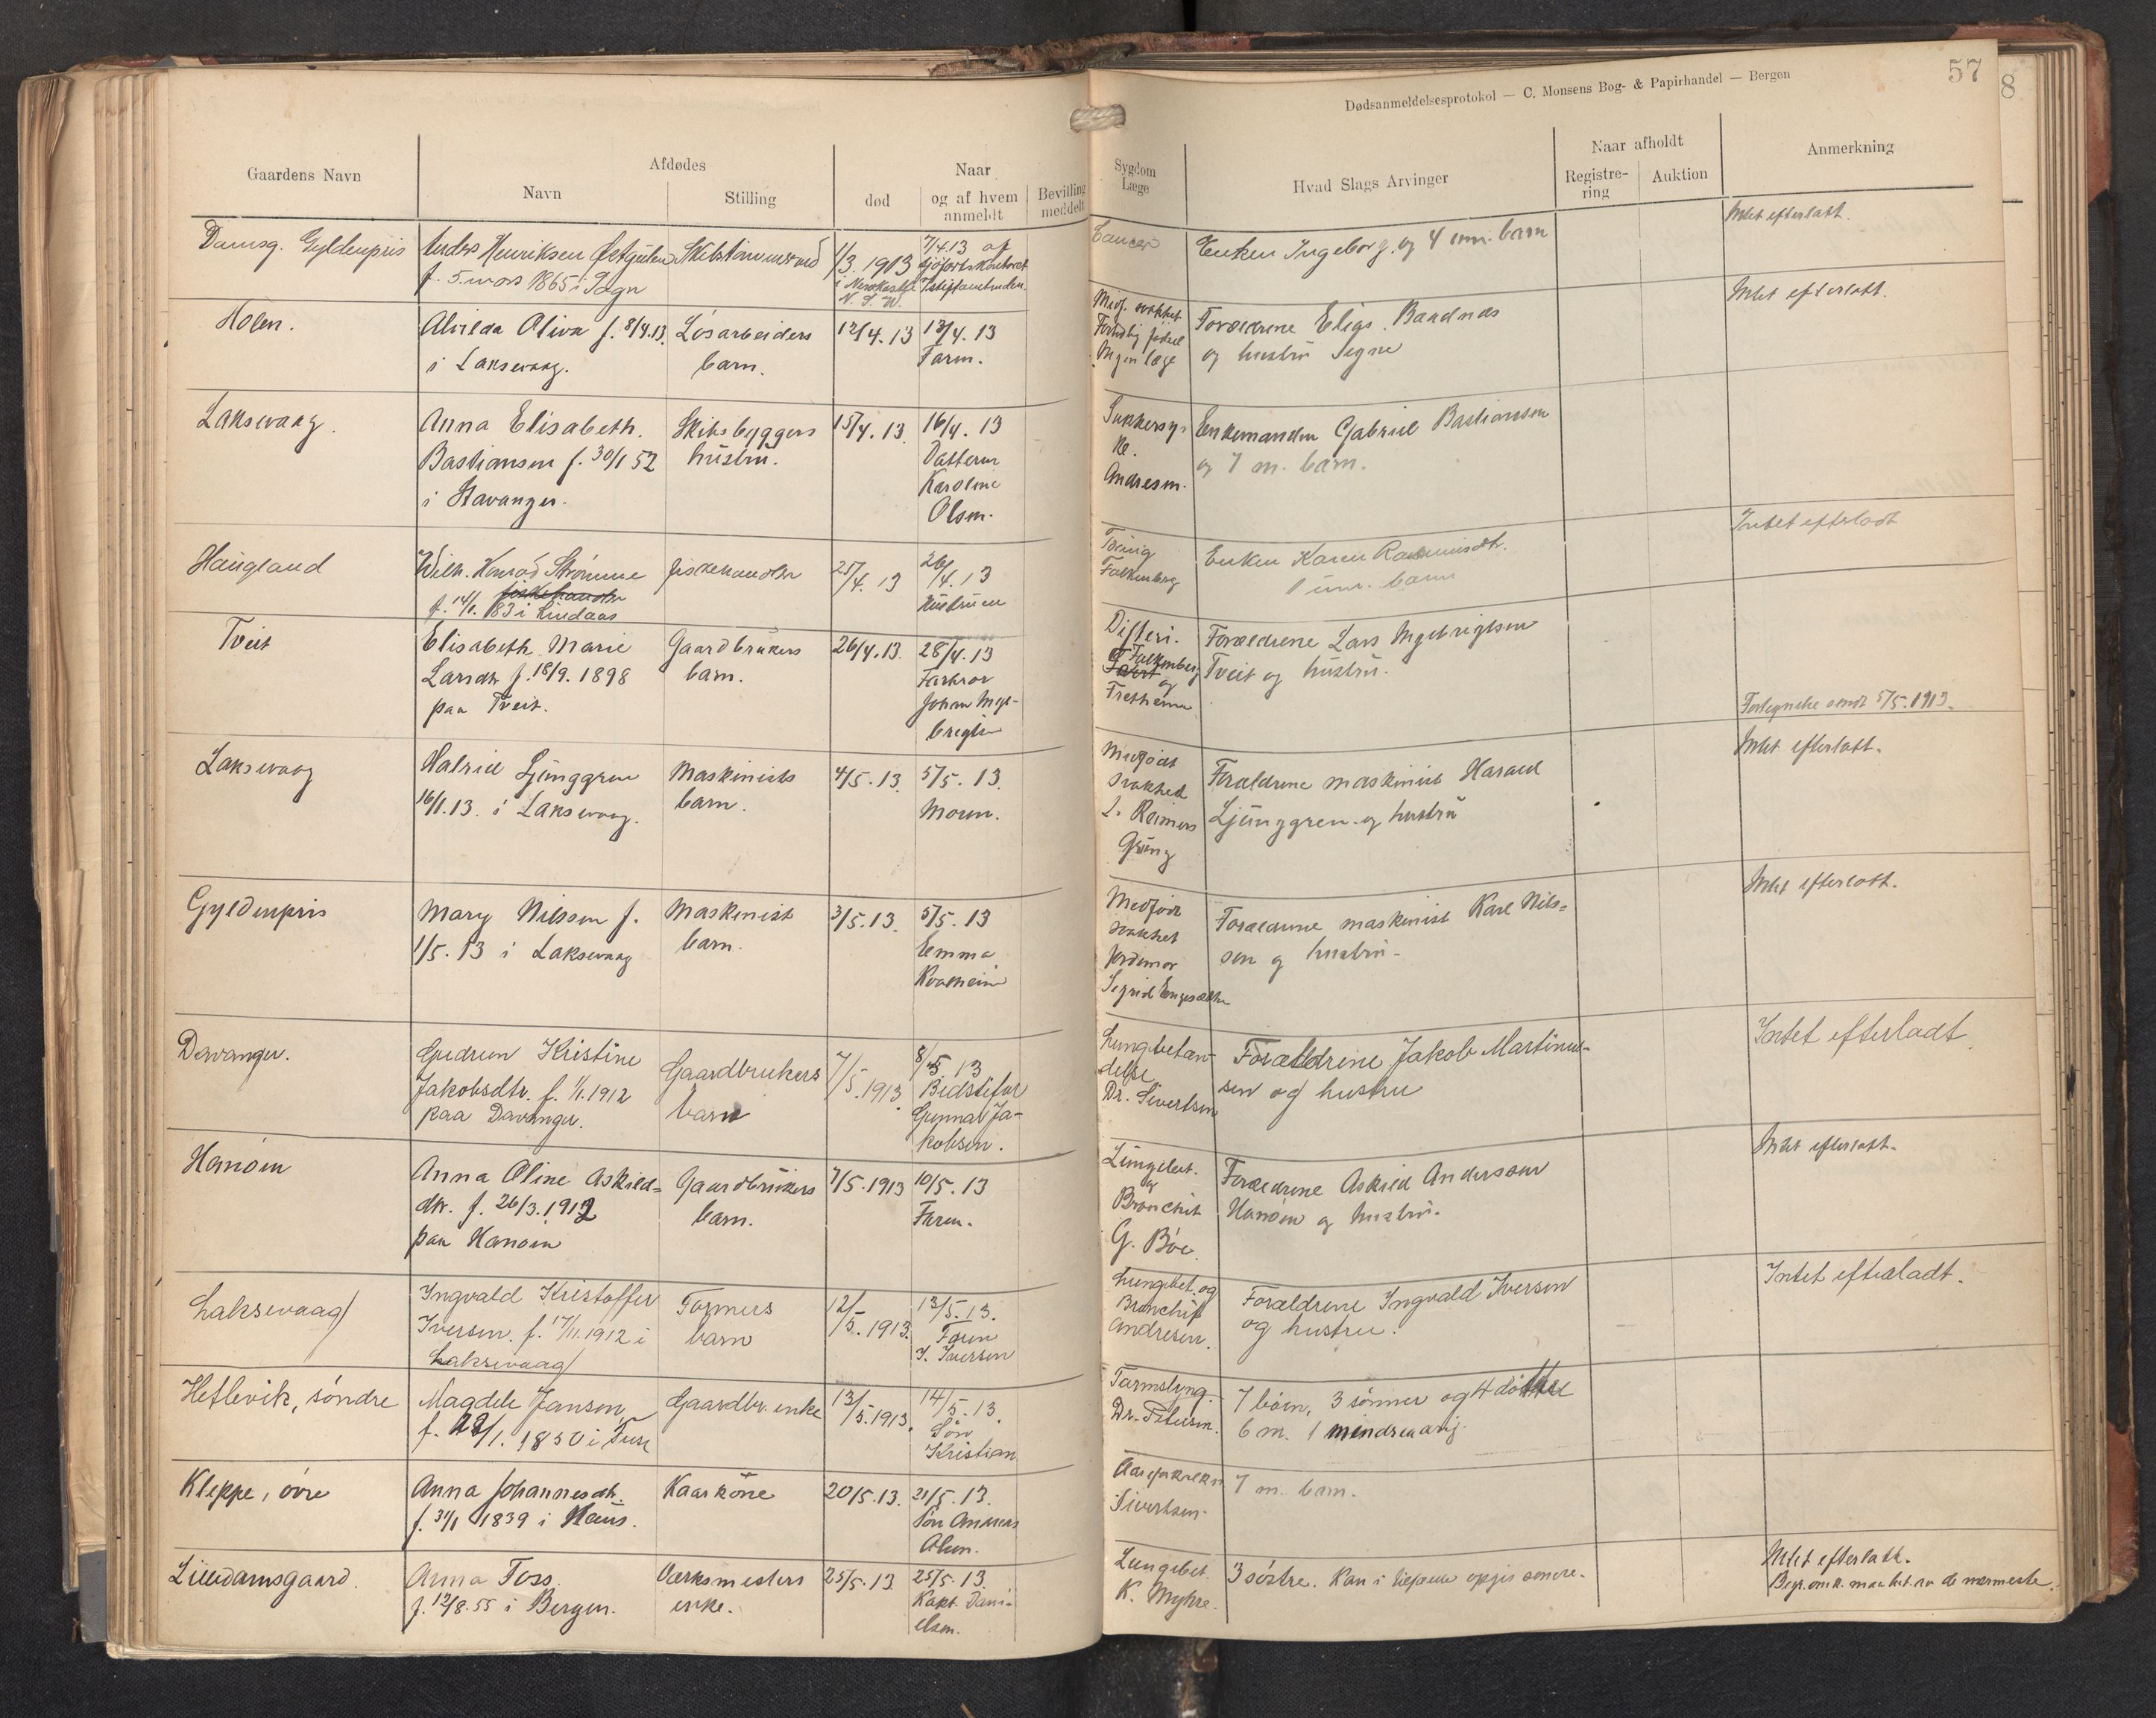 Dødsanmeldelsesprotokol — C. Monsens Bog- & Papirhandel — Bergen
57
8
Gaardens Navn
Afdødes
Navn
Stilling
død
Naar
og af hvem
anmeldt
Bevilling
meddelt
Sygdom
Læge
Hvad Slags Arvinger
Naar afholdt
Registre-
ring
Auktion
Anmerkning
Damsg. Gyldenpris
Anders Henriksen
f. 5. mars 1865 i Sogn
Skibstømmermand
1/3. 1913
i Newkastle
N. S. W.
7/4 13 af
Sjöfartskontoret
Cancer
Enken Ingeborg. og 4 um. barn
Intet efterlatt.
Holen.
Alvilda Oliva f. 8/4.13.
i Laksevaag.
Løsarbeiders
barn.
12/4.13
13/4.13
Farm.
Medf. svakhet
Fortidlig födsel
Ingen læge
Forældrene Elias Baadnæs
og hustru Signe
Intet efterlatt.
Laksevaag.
Anna Elisabeth.
Bastiansen f. 30/1 52
i Stavanger.
Skibsbyggers
hustru.
15/4.13.
16/4.13
Datteren
Karoline
Olsen.
Sukkersy-
ke.
Andresen.
Enkemanden Gabriel Bastiansen
og 7 m. barn.
Haugland
Wilh. Konrad Strømme
fiskehandler
f. 14/1. 83 i Lindaas
fiskehandler
25/4.13
26/4.13
Hustruen
Tæring
Falkenberg
Enken Karen Rasmusdt.
1 um. barn
Intet efterladt
Tveit
Elisabeth Marie
Larsdtr f. 18/9. 1898
paa Tveit.
Gaardbrukers
barn.
26/4.13.
28/4.13
Farbror
Johan Inge-
brigtsen
Difteri.
Falkenberg
og
Fretheim
Forældrene Lars Ingebrigtsen
Tveit og hustru.
Fortegnelse sendt 5/5. 1913.
Laksevaag
Halvid Ljunggren
16/1.13. i Laksevaag.
Maskinists
barn.
4/5.13.
5/5.13.
Moren.
Medfödt
svakhed
L. Reimers
Grung
Forældrene maskinist Harald
Ljunggren og hustru
Intet efterlatt.
Gyldenpris
Mary Nilssen f.
1/5.13 i Laksevaag
Maskinist
barn.
3/5.13.
5/5.13
Emma
Kvalheim
Medfödt
svakhet
Jordmor
Sigrid Engesæther
Forældrene maskinist Karl Nils=
sen og hustru.
Intet efterlatt.
Davanger.
Gudrun Kristine
Jakobsdtr. f. 1/1.1912
paa Davanger.
Gaardbrukers
barn
7/5.1913.
8/5.13
Bedstefar
Gunnar Ja-
kobsen.
Lungebetæn-
delse
Dr. Sivertsen
Forældrene Jakob Martinus-
sen og hustru
Intet efterladt.
Hanöin
Anna Oline Askild=
dtr. f. 26/3.1912
paa Hanöin
Gaardbrukers
barn.
7/5.1913
10/5.13
Faren.
Lungebet.
og
Bronchit
G. Böe.
Forældrene Askild Anderssen
Hanöin og hustru.
Intet efterlatt.
Laksevaag
Ingvald Kristoffer
Iversen. f. 17/11.1912 i
Laksevaag
Formers
barn
12/5.1913.
13/5.13.
Faren
I. Iversen
Lungebet. og
Bronchit
Andresen.
Forældrene Ingvald Iversen
og hustru.
Intet efterladt.
Hetlevik, söndre
Magdele Jansen
f. 28/1. 1850 i Fuse
Gaardbr. enke
13/5.1913.
14/5.13.
Sön
Kristian
Tarmslyng.
Dr. Petersen.
7 börn, 3 sönner og 4 döttre
6 m. 1 mindreaarig.
Kleppe, övre
Anna Johannesdt.
f. 31/1 1839 i Haus.
Kaarkone
20/5.13.
21/5.13.
Sön Andreas
Olsen.
Aareforkalkn.
Sivertsen.
7 m. barn.
Lilledamsgaard.
Anna Foss.
f. 12/8.55 i Bergen.
Verksmesters
enke.
25/5.13.
25/5.13.
Kapt. Dani-
elsen.
Lungebet.
K. Myhre.
3 söstre. Kan i tilfælde opgis senere.
Intet efterlatt.
Begr. omk. maa bet. av de nærmeste.